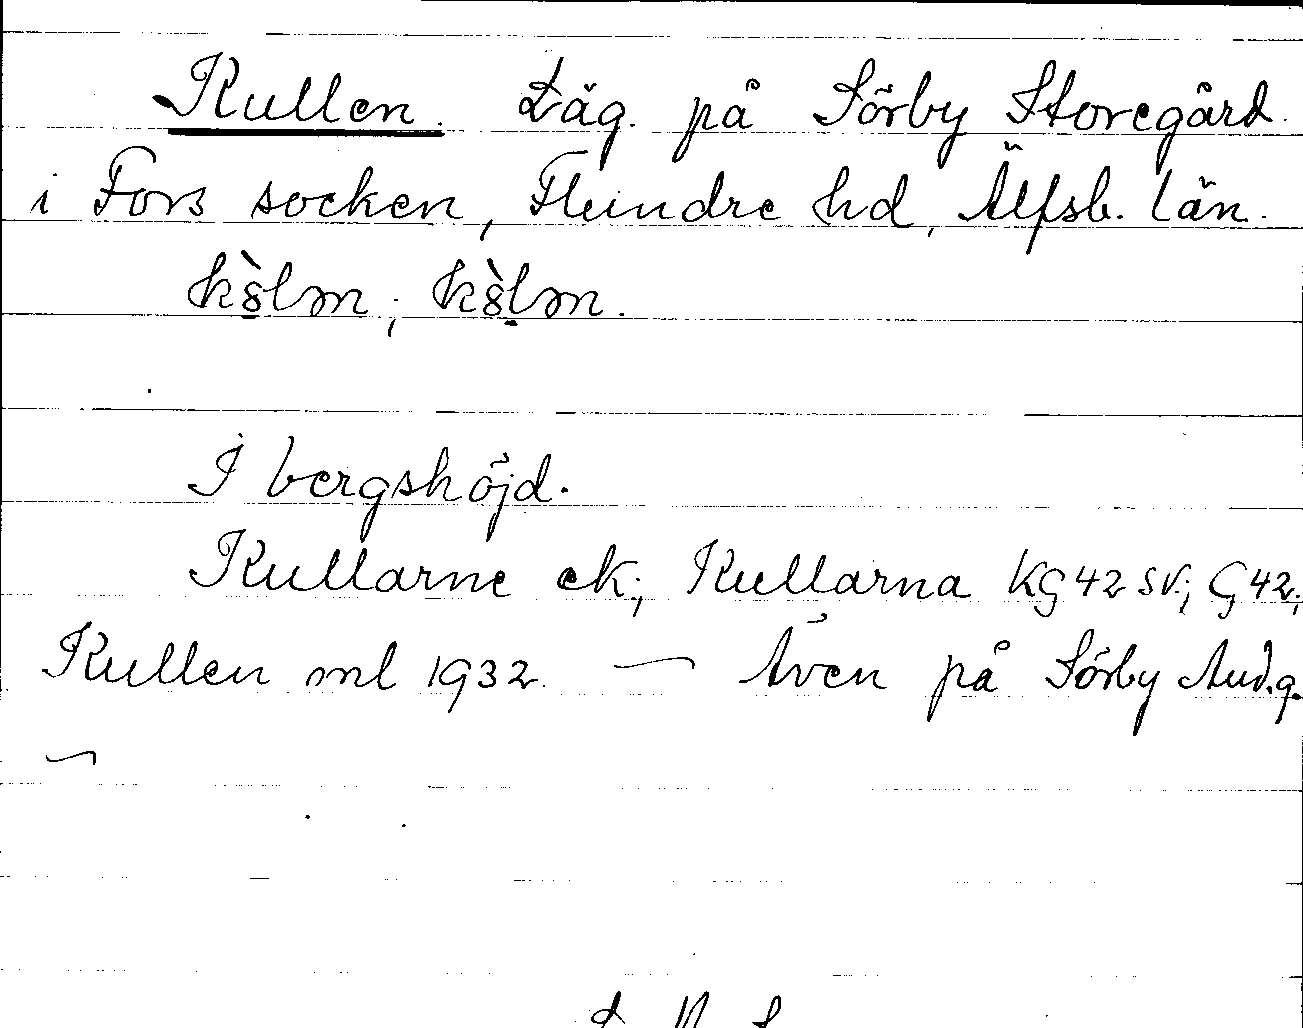 Kullen. Läg. på Sörby Storegård
i Fors socken, Flundre hd, Älfsb. län.
I bergshöjd.
Kullarne ek; Kullarna KG42 sv.; G42;
Kullen ml 1932. — Även på Sörby And.g.